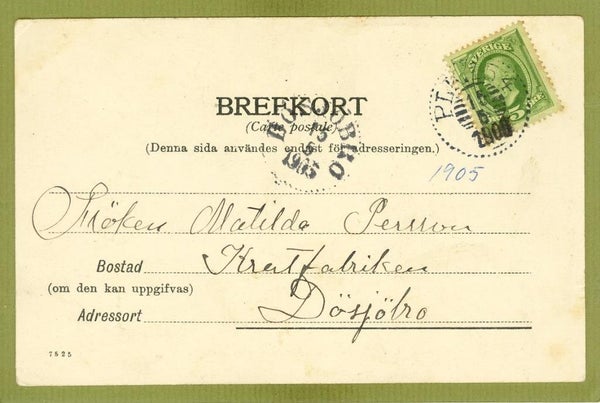 SVERIGE
BREFKORT
(Carte postale)
(Denna sida användes endast för adresseringen.)
1905
1905
Fröken Matilda Persson
Bostad Krutfabriken
(om den kan uppgifvas)
Adressort Dösjöbro
7525